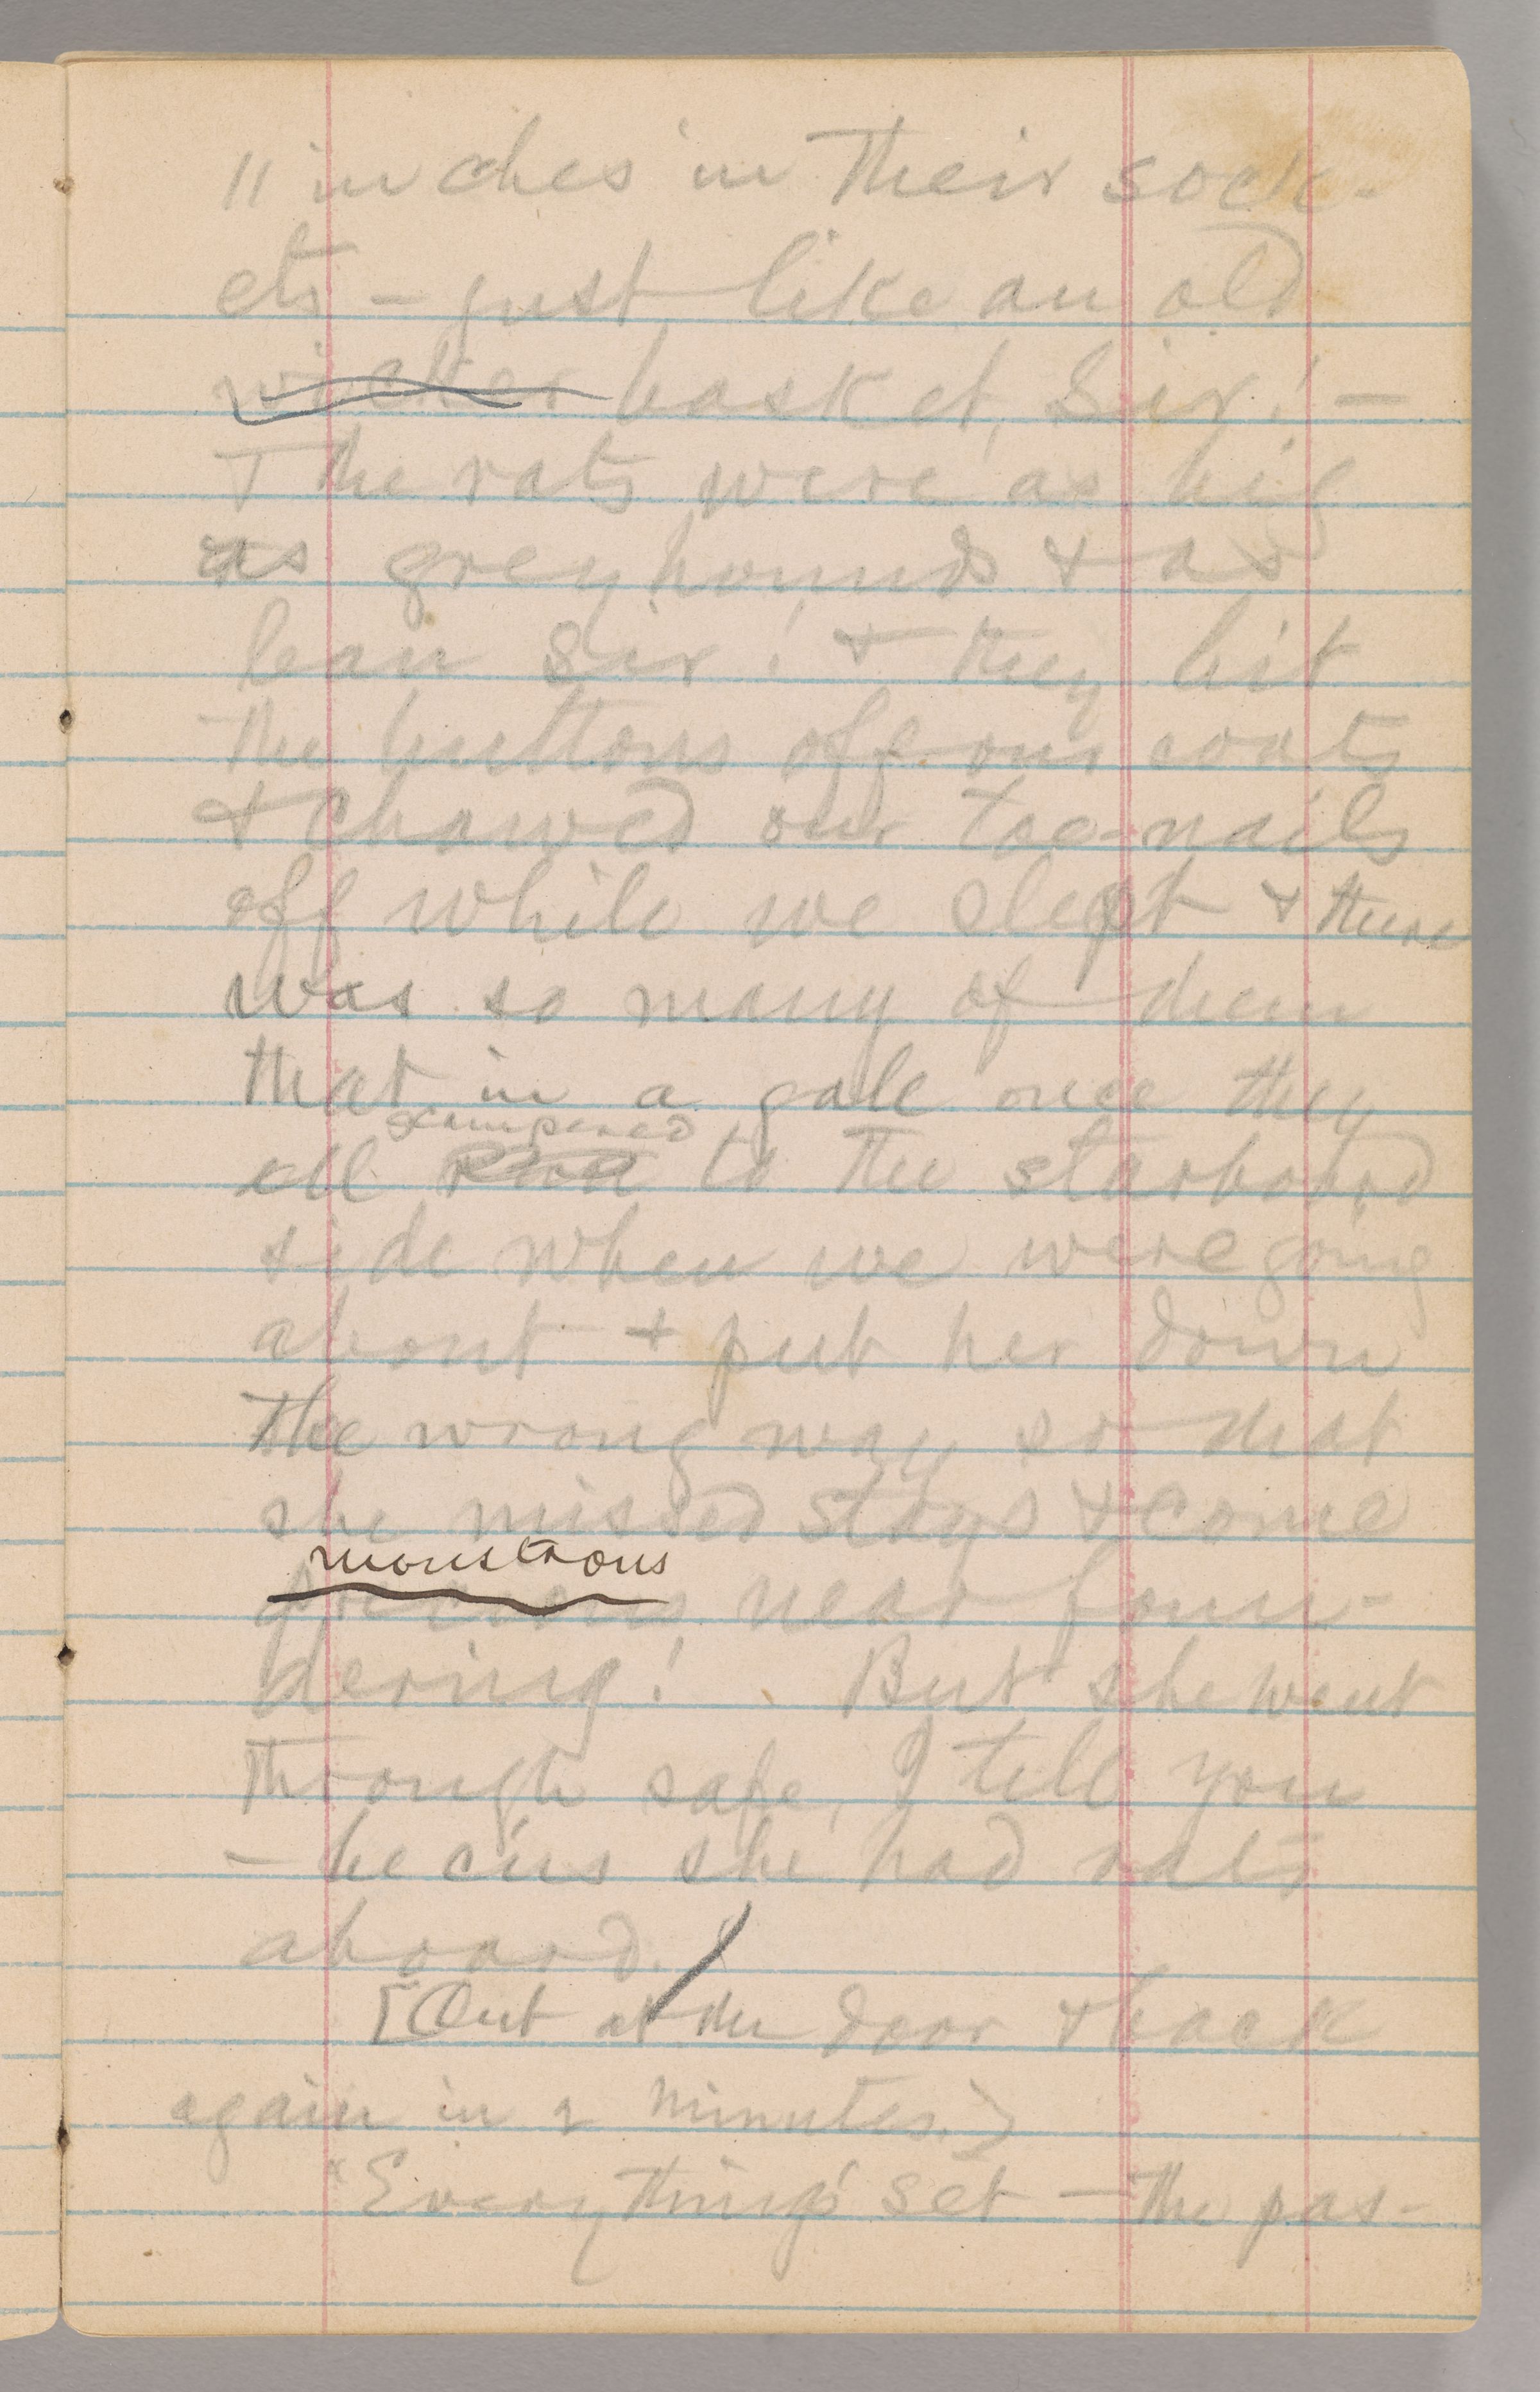 11 inches in their sock-
ets – just like an old
wicker basket, Sir! –
The rats were as big
as greyhounds & as
lean Sir! & they bit
the buttons off our coats
& chawed our toe-nails
off while we slept & there
was so many of them
that in a gale once they
scampered
all run to the starboard
side when we were going
about & put her down
the wrong way so that
she missed stays & come
monstrous
near foun-
dering! But she went
through safe, I tell you
– becus she had rats
aboard.
[Out at the door & back
again in 2 minutes.]
"Everything's set – the pas-